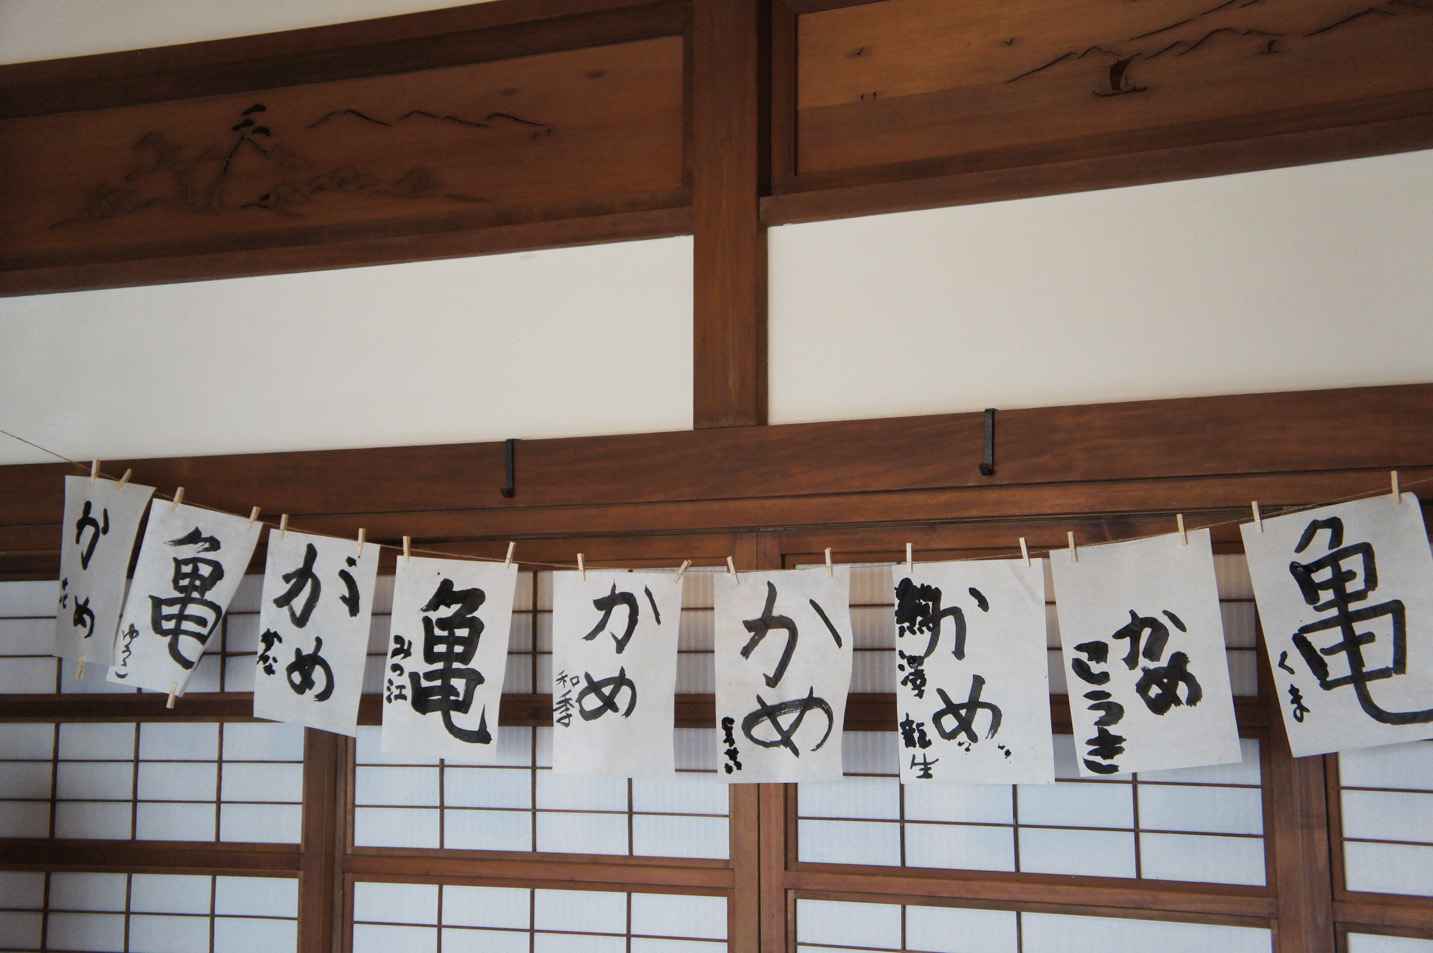 かめ
亀
ゆきこ
かめ
かな
亀
みつ江
かめ
和季
かめ
かめ
龍生
かめ
こうき
亀
くま